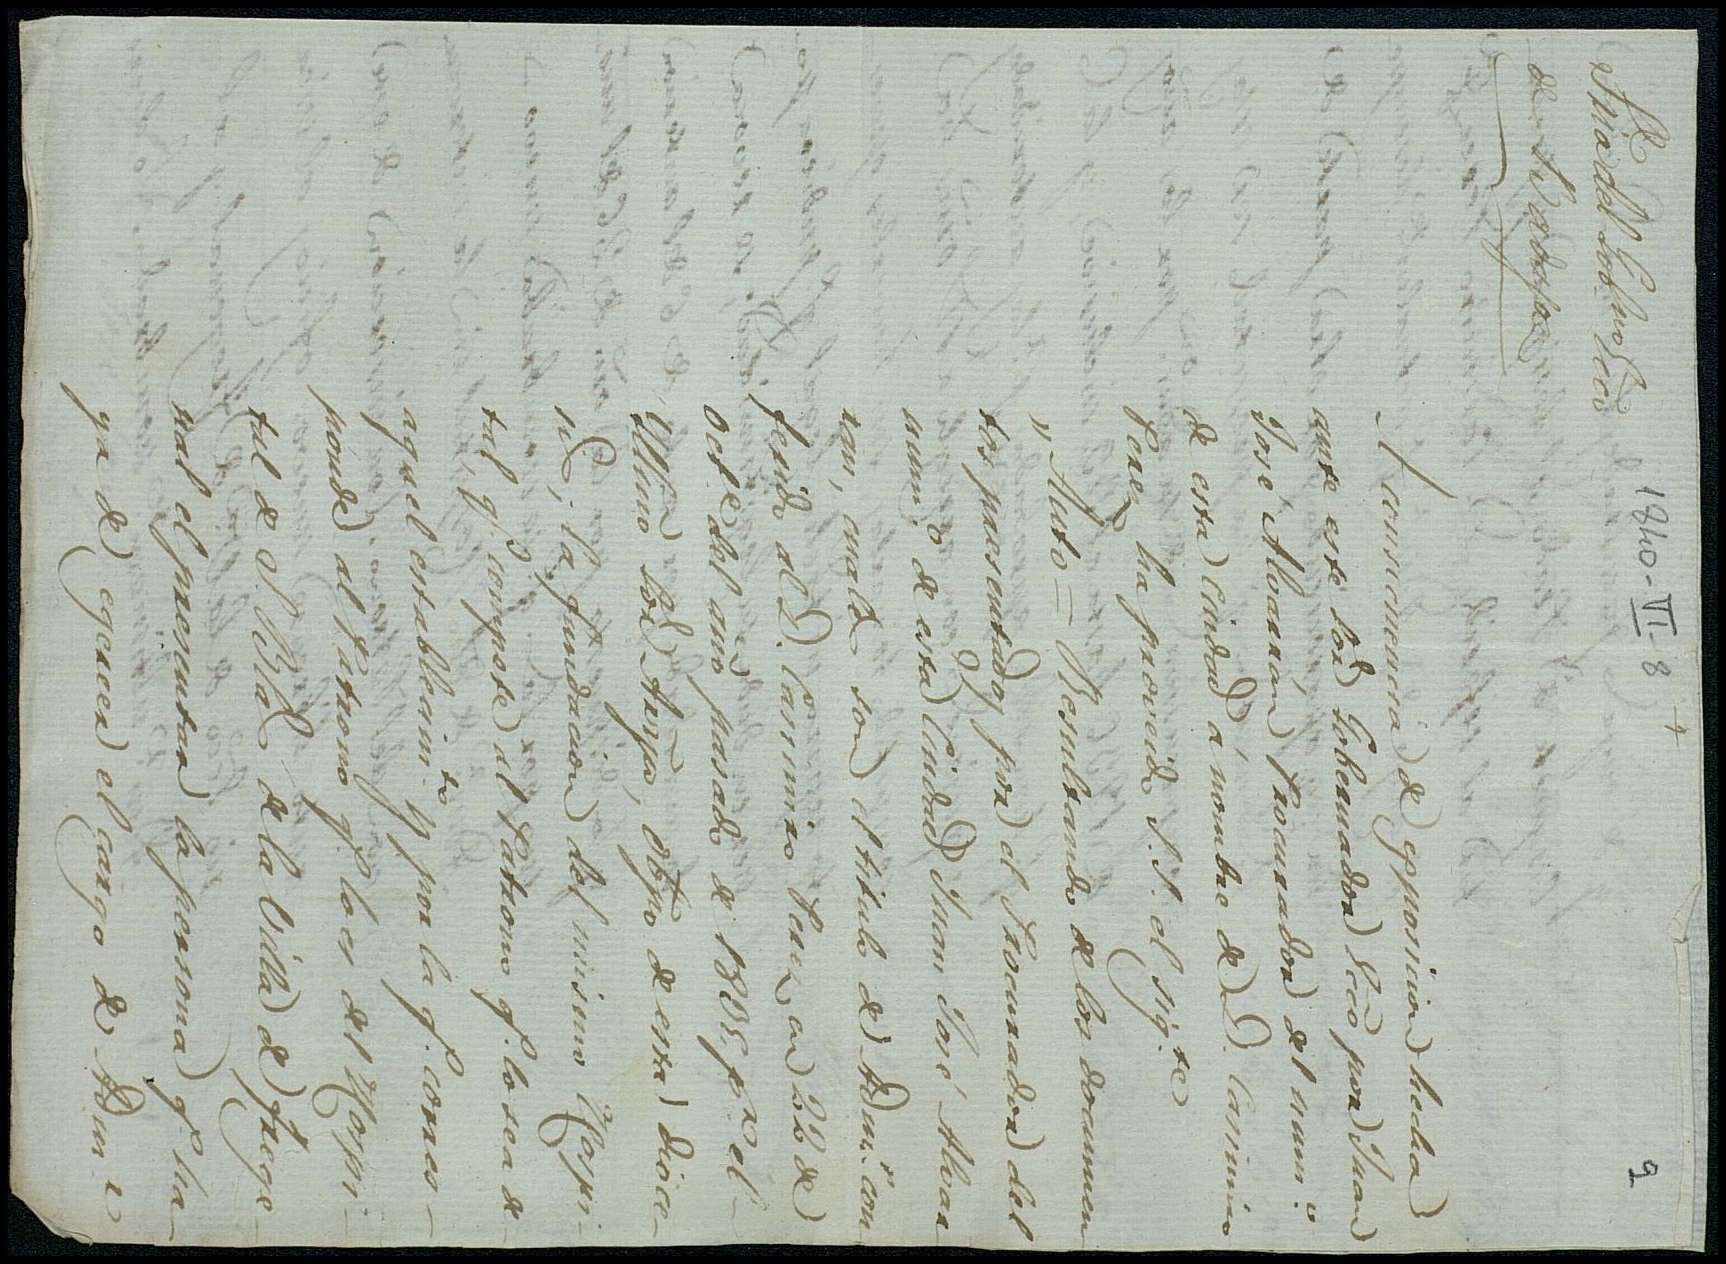 1840-VI-8
2
Aud.ª del Gob.no Ecco
de Badajoz
A consecuencia de esposicion hecha
ante este Sor. Gobernador Ecco por Juan
José Alvarez, Procurador del num.o
de esta Ciudad á nombre de D. Casimiro
Perez, ha proveido S.S. el sig.te
"Auto = Resultando de los documen
tos presentados por el Procurador del
num.o de esta Ciudad Juan José Alvar
cuales son el titulo de Adm.or con
ferido al D. Casimiro Perez en 22 de
Oct.e del año pasado de 1835, p.r el
Yllmo Sor. Anzo, Obpo de esta Dioce-
sis, la fundacion del mismo Hospi-
tal q.e compete al Patrono q.e lo sea de
aquel establecim.to y por la q.e corres-
ponde al Patrono q.e lo es del Hospi-
tal de S. Blas de la Villa de Frege-
nal el presentar la persona q.e ha-
ya de egercer el cargo de Adm.r